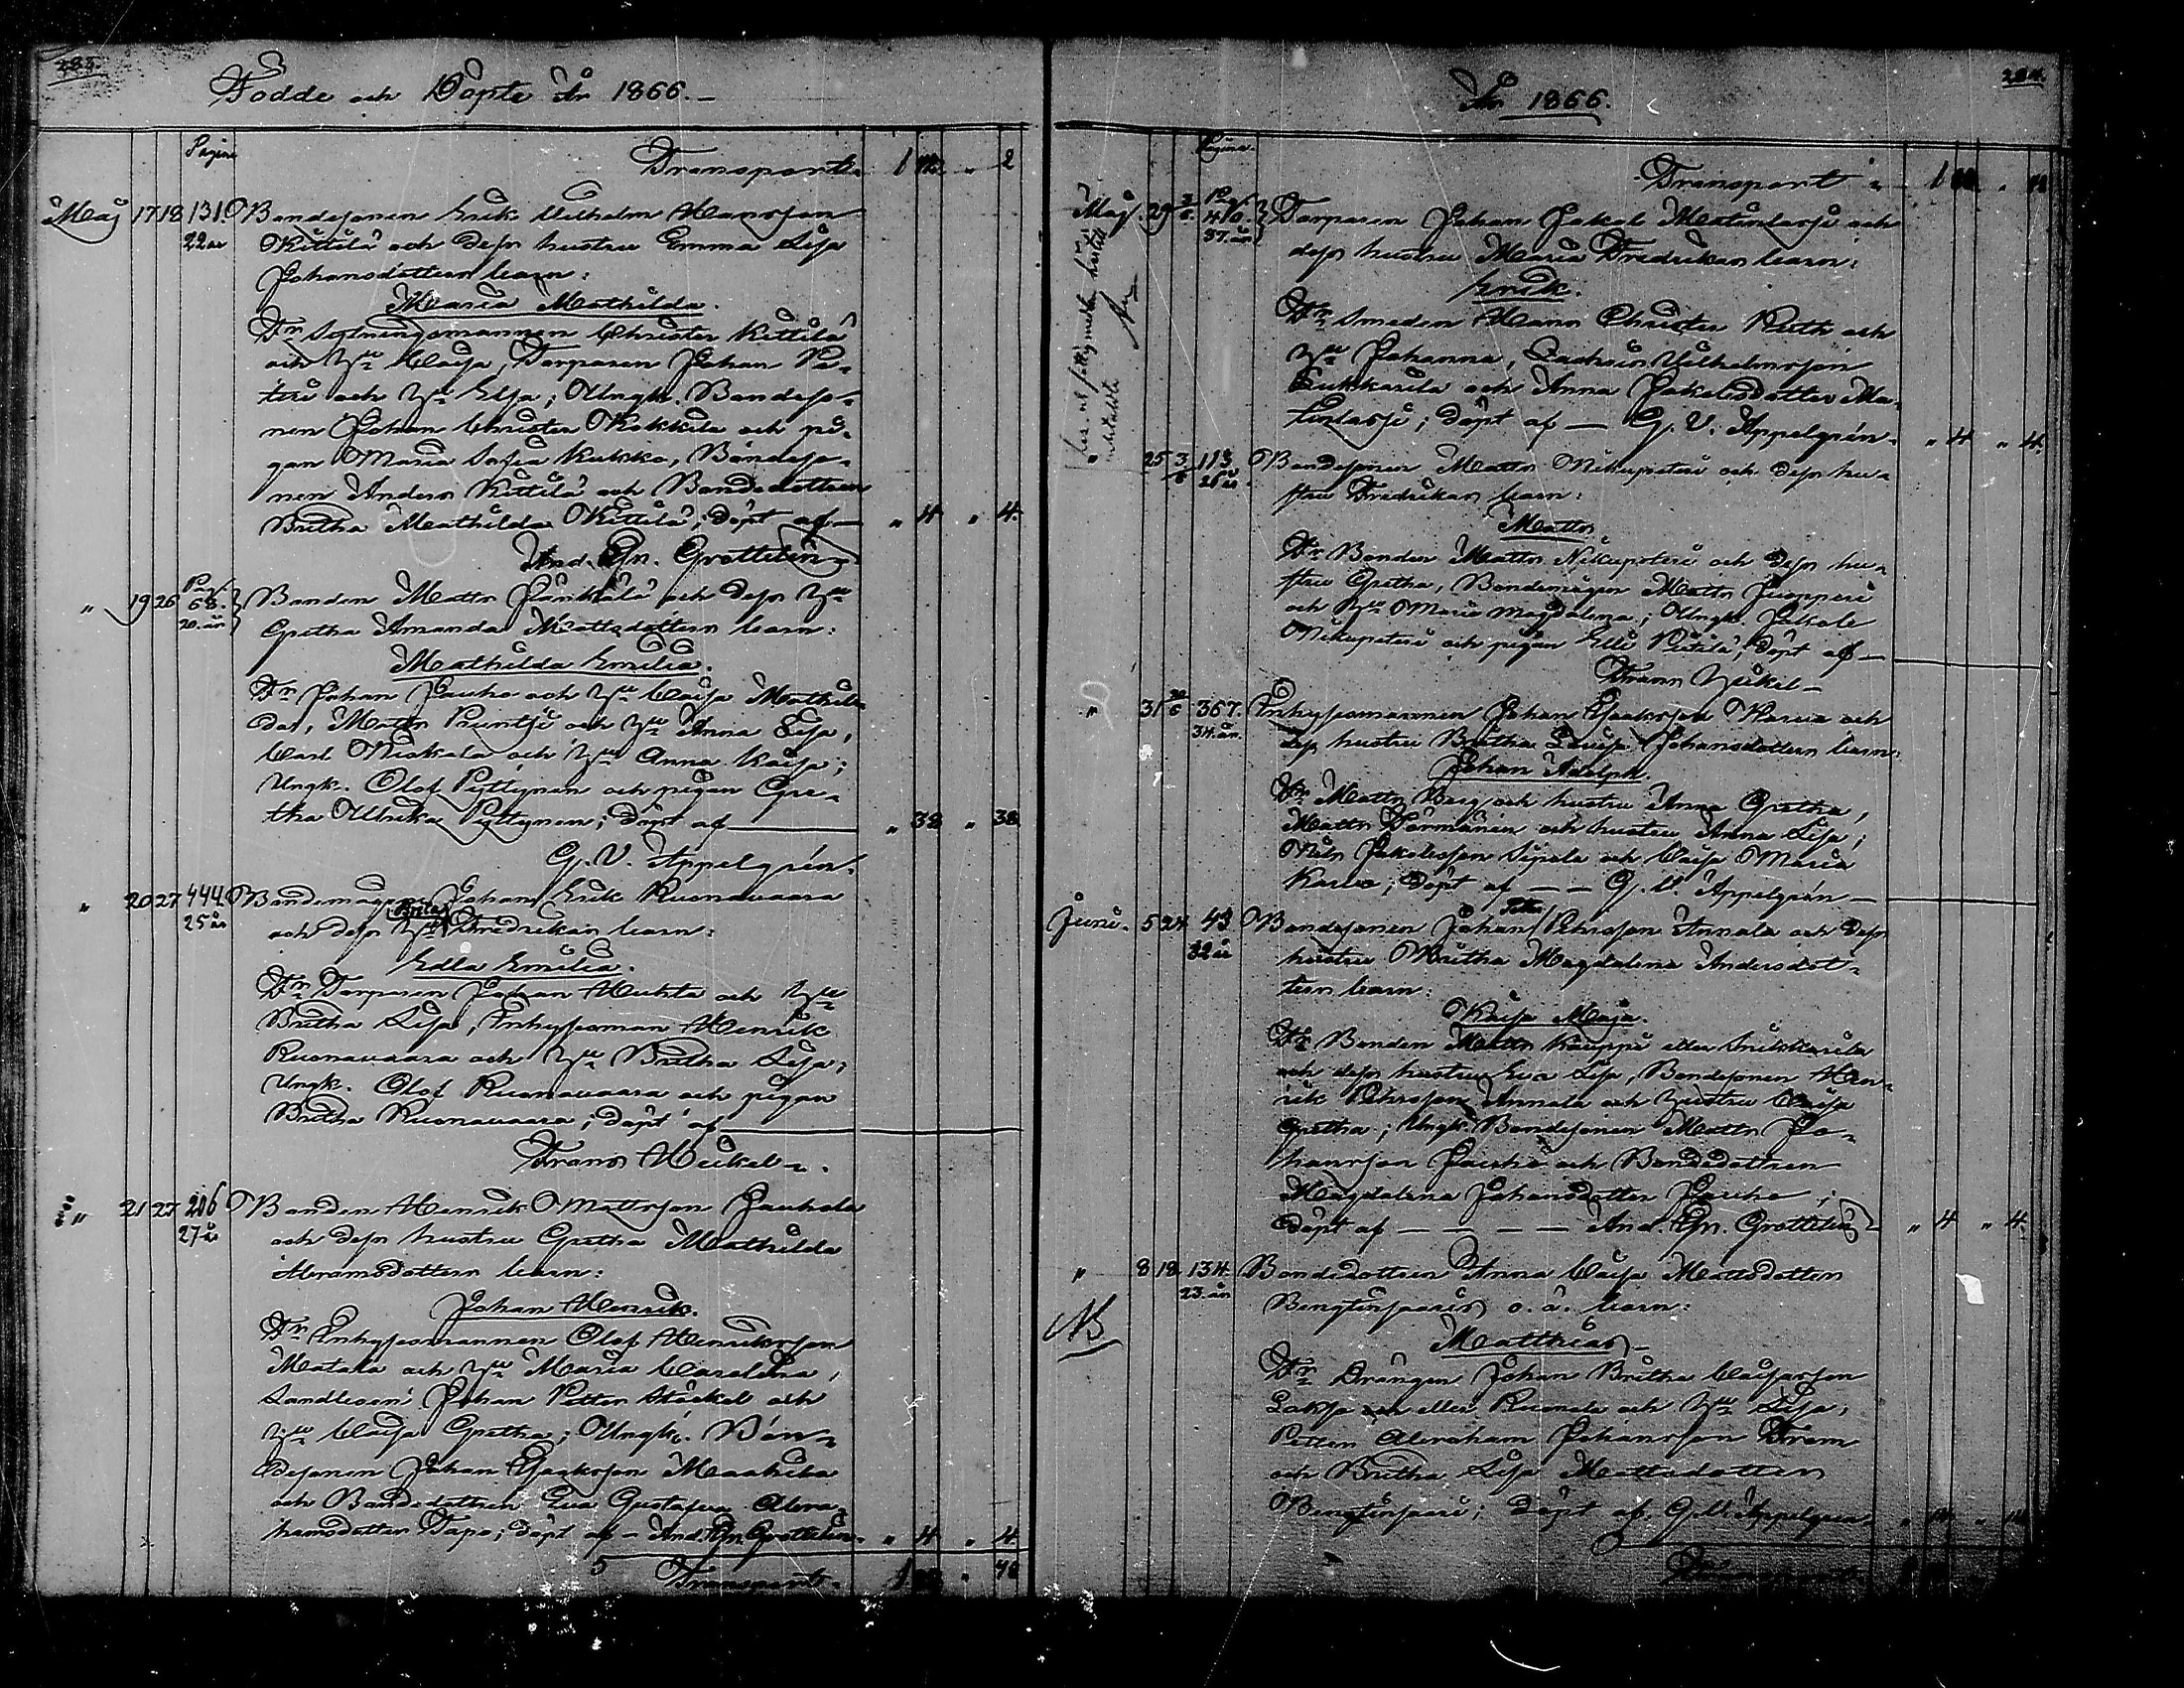 283.
Födde och Döpte År 1866.
Pagina
Transport 1 2
Maj 17 18 131 Bondesonen Erik Wilhelm Hansson
22 år Kittilä och dess hustru Emma Lisa
Johansdotters barn:
Maria Mathilda.
Fr. Sexmannen Christer Kittilä
och hu Caisa, Torparen Johan Pe-
teri och hu Elsa; Ungk. Bondeso-
nen Johan Christer Kokkila och pi-
gan Maria Sofia Kukko, Bondeso-
nen Anders Kittilä och Bondedottren
Britha Mathilda Kittilä; döpt af — " 4 " 4.
And. Gr. Grottelin.
" 19 26 Pag. 68. Bonden Matts och dess hu
20. år Gretha Amanda Mattsdotters barn:
Mathilda Emilia.
Fr. Johan Jauho och hu Caisa Mathil-
da, Matts Pruntsi och hu Anna Lisa,
Carl Niskala och hu Anna Kaisa;
Ungk. Olof Pyttynen och pigan Gre-
tha Ulrika Pyttynen; döpt af — " 38 " 38
G. V. Appelgrén.
" 20 27 444. Bondemågen Johan Erik Ruonavaara
25 år och dess hu Brita Fredrikas barn:
Edla Emilia.
Fr. Torparen Johan Huhta och hu
Britha Lisa, Inhysesman Henrik
Ruonavaara och hu Britha Lisa;
Ungk. Olof Ruonavaara och pigan
Britha Ruonavaara; döpt af —
Frans Heikel.
" 21 27 206 Bonden Henrik Mattsson Jauhola
27 år och dess hustru Gretha Mathilda
Abramsdotters barn:
Johan Henrik.
Fr. Inhysesmannen Olof Henriksson
Matala och hu Maria Carolina,
Landboen Johan Petter Stöckel och
hu Caisa Gretha; Ungk. Bon-
desonen Johan Isaksson Maahila
och Bondedottren Eva Gustafva Abra-
hamsdotter Tapa; döpt af — And. Gr. Grottelin. " 4 " 4
5 Transport. 1
284.
År 1866.
Pagina.
Transport 1
Maj. 29 3/6 Pag. 410. Torparen Johan Jakob Matintasi och
37. år dess hustru Maria Fredrikas barn:
Erik.
Fr. Smeden Hans Christer Ruth och
hu Johanna, Zachris Wilhelmsson
Sukkarila och Anna Jakobsdotter Ma-
tintasi; döpt af — G. V. Appelgrén. " 4 " 4.
25 3/6 113. Bondesonen Matts Nikupeteri och dess hu-
26 år stru Fredrikas barn:
Matts
Fr. Bonden Matts Nikupeteri och dess hu-
stru Gretha, Bondemågen Matts Juopperi
och hu Maria Magdalena; Ungk. Jakob
Nikupeteri och pigan Elli Pietilä; döpt af —
Frans Heikel —
" 31 367. Inhysesmannen Johan Isaksson Karva och
34. år. dess hustru Britha Lovisa Johansdotters barn:
Johan Adolph.
Fr. Matts Berg och hustru Anna Gretha,
Matts Törmänen och hustru Anna Lisa;
Nils Jakobsson Sipola och Caisa Maria
Karva; döpt af — — G. V. Appelgrén —
Juni. 5 24 43 Bondesonen Johan Petter Pehrsson Annala och dess
32 år hustru Britha Magdalena Andersdot-
ters barn:
Kaisa Maja.
Fr. Bonden Matts Kauppi eller Snikkarila
och dess hustru Eva Lisa, Bondesonen Hen-
rik Pehrsson Annala och hustru Caisa
Gretha; Ungk. Bondesonen Matts Jo-
hansson Jauho och Bondedottren
Magdalena Johansdotter Jauho;
döpt af — — — — And. Gr. Grottelin " 4 " 4.
" 8 18 134. Bondedottren Anna Caisa Mattsdotter
23. år Bengtinparis o. ä. barn:
NB Matthias —
Fr. Drängen Johan Britha Caisasson
Laksa eller Ruonala och hu Lisa,
Petter Abraham Johansson From
och Britha Lisa Mattsdotter
Bengtinpari; döpt af G. V. Appelgrén.
Transport